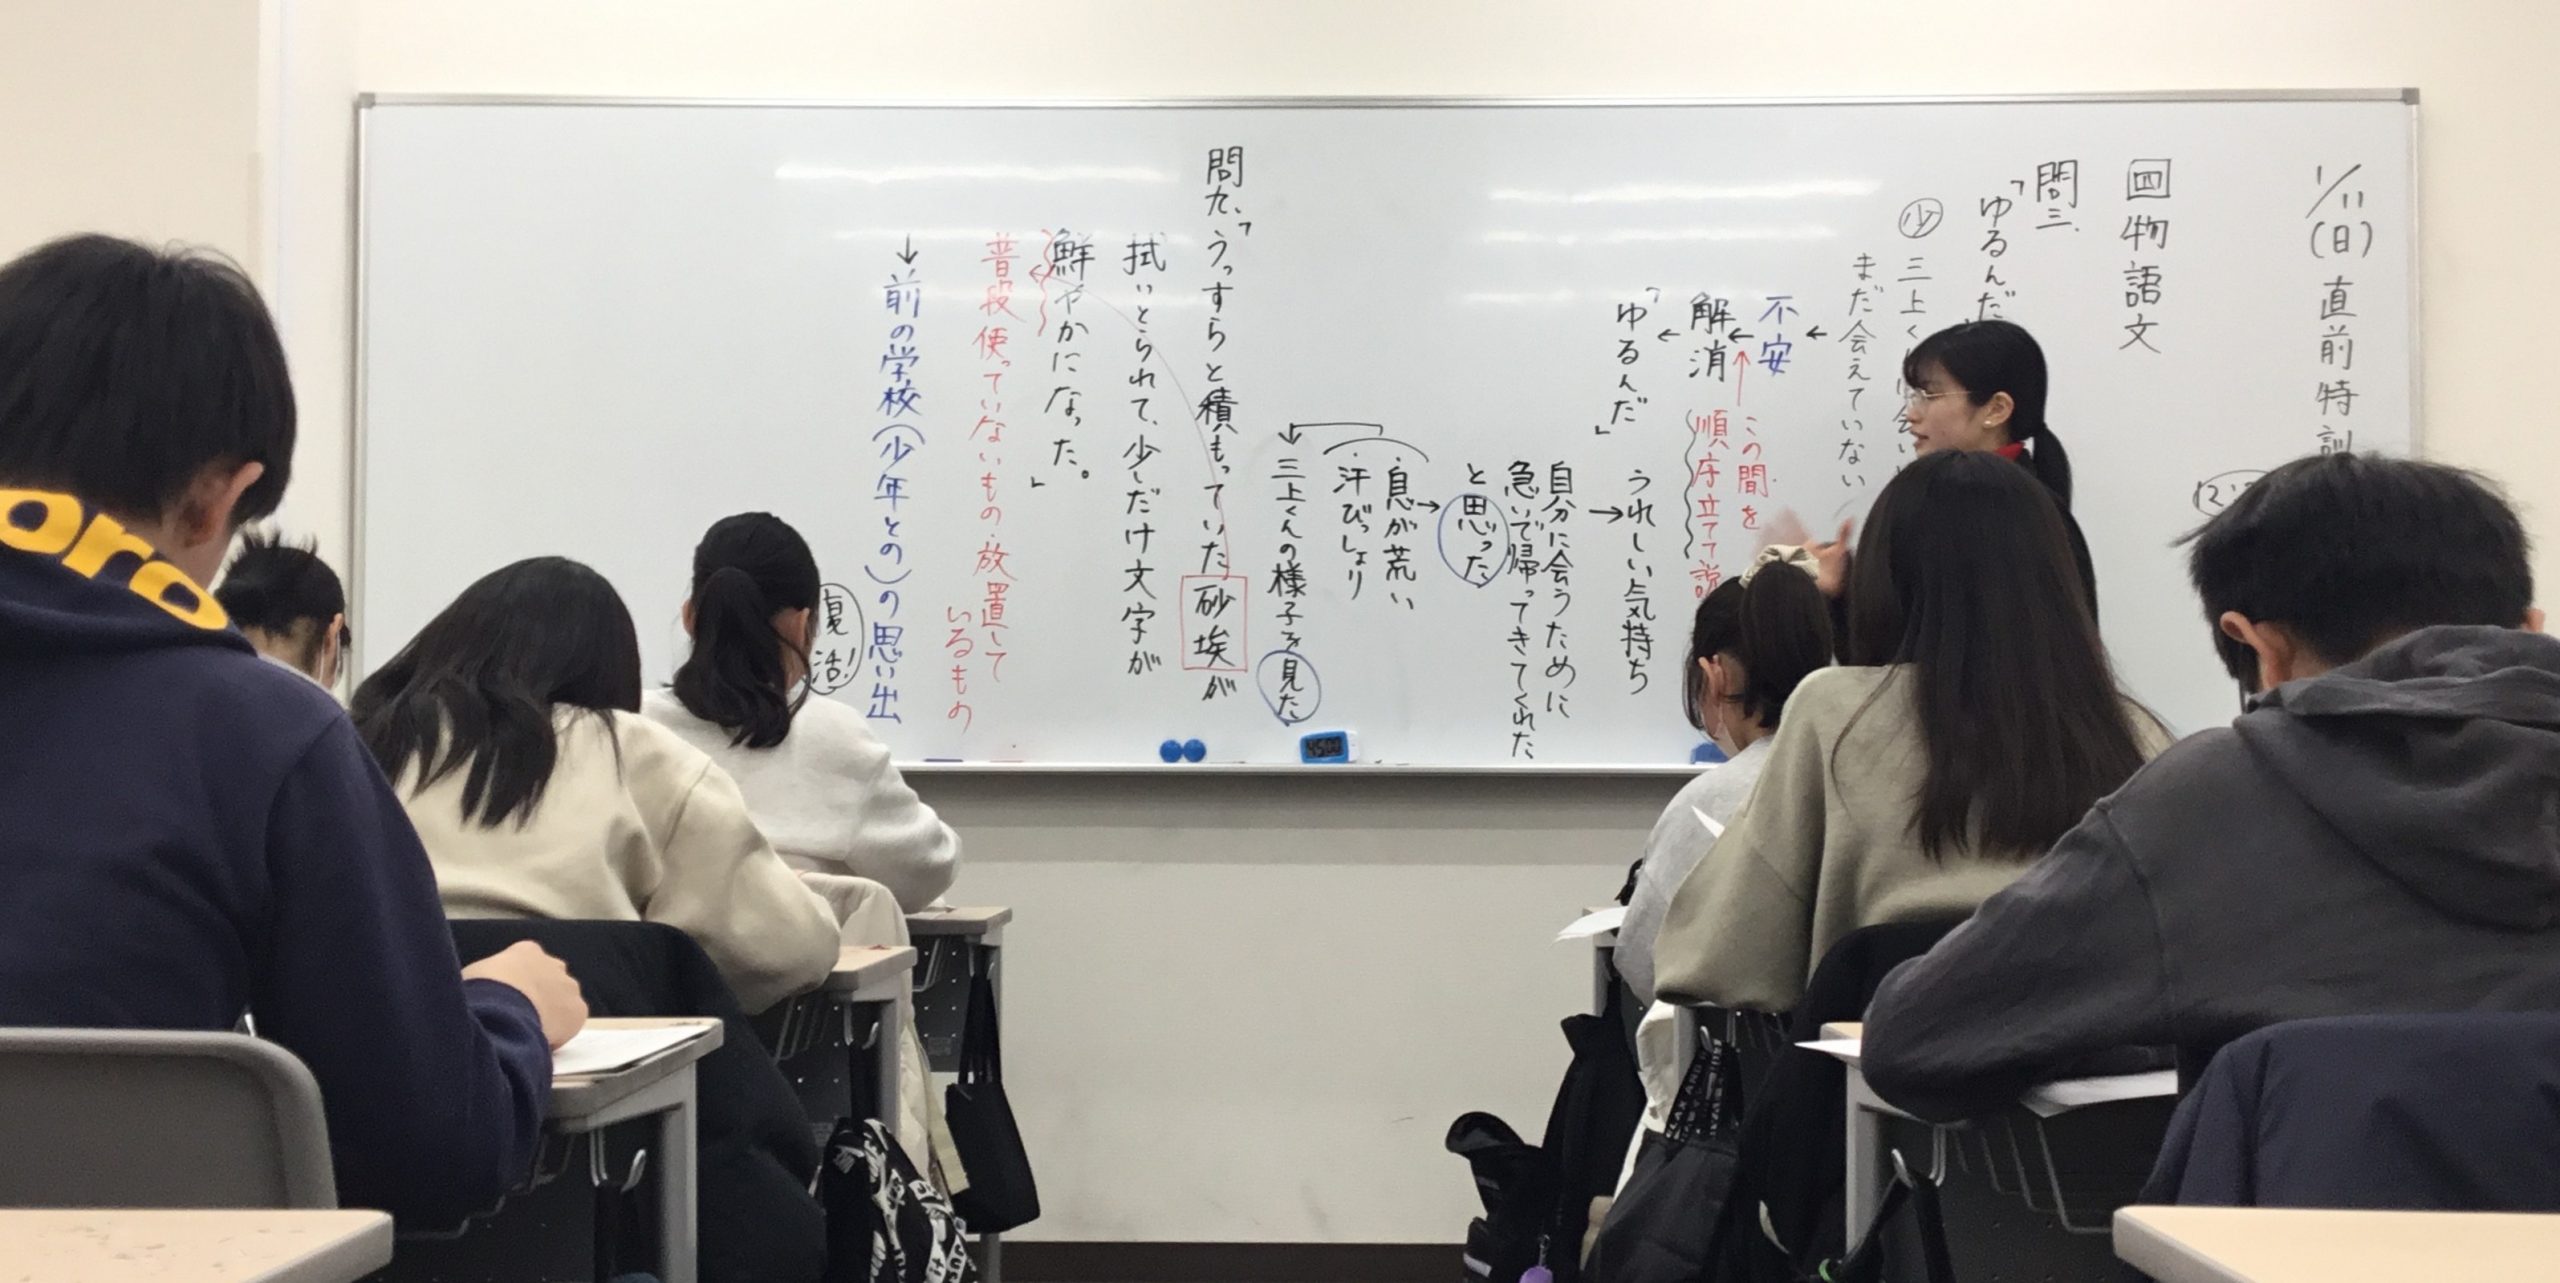 1/11(日)直前特訓
四 物語文
問三.
「ゆるんだ
少 三上く
まだ会えていない
不安
この間を
順序立てて説
解消
「ゆるんだ」
うれしい気持ち
自分に会うために
急いで帰ってきてくれた
と思った
・息が荒い
・汗びっしょり
三上くんの様子を見た
問九、「うっすらと積もっていた砂埃が
拭いとられて、少しだけ文字が
鮮やかになった。」
普段使っていないもの・放置して
いるもの
前の学校(少年との)の思い出
復活!
45:00
oro